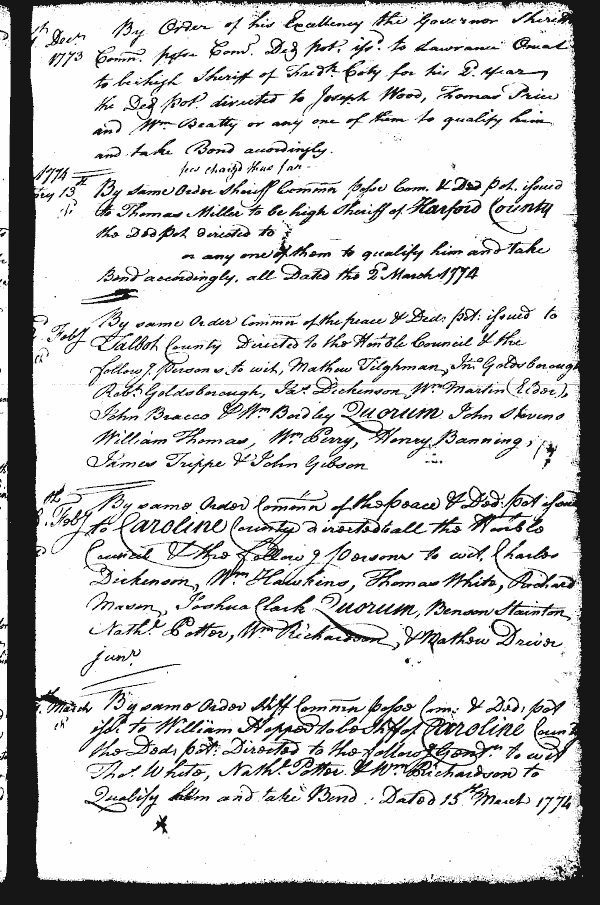 Decr By Order of his Excellency the Governor Sheriff
1773 Comn. posse Com. Ded pot. issd. to Lawrance Oneal
to be high Sheriff of Fredk. Coty for his 2d. year
the Ded pot directed to Joseph Wood, Thomas Price
and Wm Beatty or any one of them to qualify him
and take Bond acordingly.
fees chargd thus far
1774
13th By same Order Sheriff Commn posse Com. & Ded pot. issued
to Thomas Miller to be high Sheriff of Harford County
the Ded pot directed to
or any one of them to qualify him and take
Bond acordingly. all Dated the 2d March 1774
By same Order Commn of the peace & Ded: pot: issued to
Feby Talbot County Directed to the Honble Council & the
followg. persons, to wit, Mathew Tilghman, Jno Goldsborough
Robt. Goldsborough, Jas. Dickenson, Wm Martin (Elder),
John Bracco & Wm Bordley Quorum John Stevens
William Thomas, Wm Perry, Henry Banning,
James Trippe & John Gibson
th By same Order Commn of the peace & Ded: pot issued
Feby to Caroline County directed all the Honble
Council & the followg persons to wit, Charles
Dickenson, Wm Hawkins, Thomas White, Richard
Mason, Joshua Clark Quorum, Benson Stainton,
Nathl. Potter, Wm Richardson, & Mathew Driver
junr.
March By same Order Shff Commn posse Com: & Ded: pot
issd: to William Hopper to be Shff of Caroline County
the Ded: pot: Directed to the followg Gentn. to wit
Thos. White, Nathl. Potter & Wm Richardson to
Qualify him and take Bond. Dated 15th March 1774